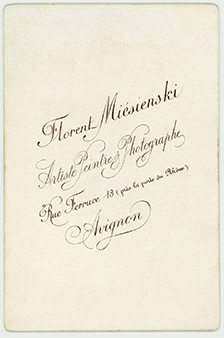 Florent Miésienski
Artiste Peintre & Photographe
Rue Ferruce 13 (près la porte du Rhône)
Avignon